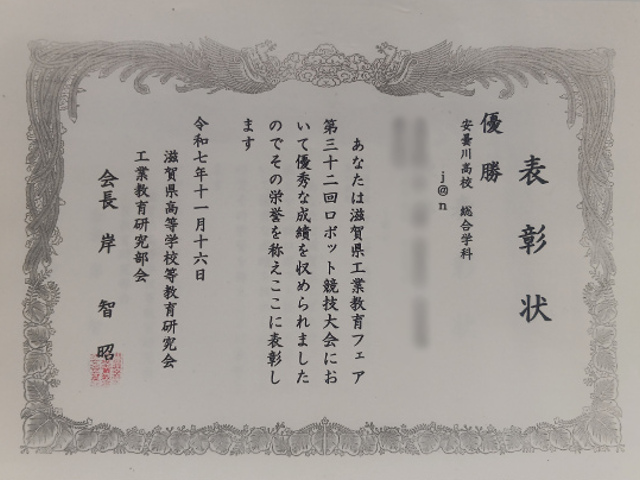 表彰状
優勝
安曇川高校 総合学科
j@n
あなたは滋賀県工業教育フェア
第三十二回ロボット競技大会にお
いて優秀な成績を収められました
のでその栄誉を称えここに表彰し
ます
令和七年十一月十六日
滋賀県高等学校等教育研究会
工業教育研究部会
会長 岸 智昭